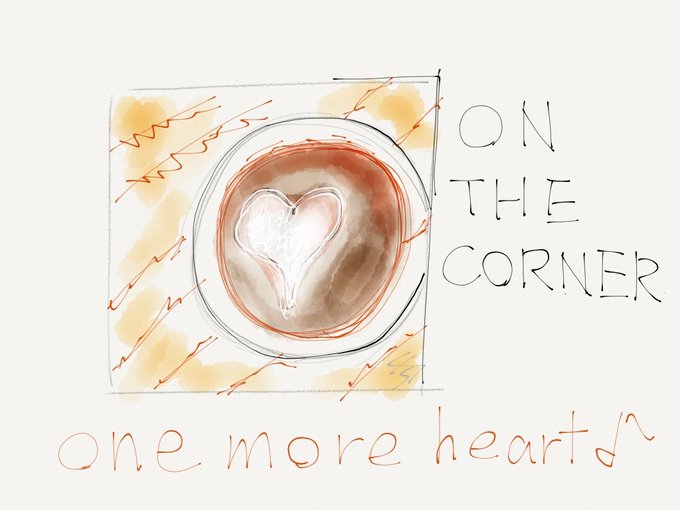 ON
THE
CORNER
one more heart♪